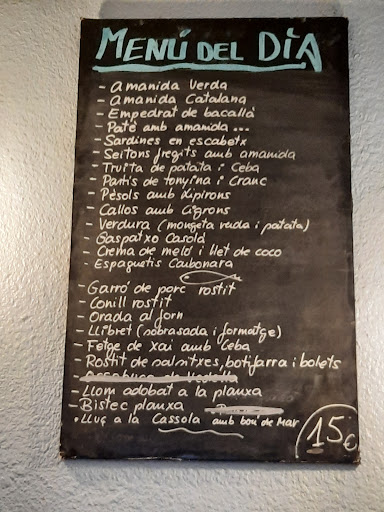 MENÚ DEL DIA
- Amanida Verda
- Amanida Catalana
- Empedrat de bacallà
- Paté amb amanida ...
- Sardines en escabetx
- Seitons fregits amb amanida
- Truita de patata i Ceba
- Pastís de tonyina i Cranc
- Pèsols amb Xipirons
- Callos amb Cigrons
- Verdura (mongeta verda i patata)
- Gaspatxo Casolà
- Crema de meló i llet de coco
- Espaguetis Carbonara
- Garró de porc rostit
- Conill rostit
- Orada al forn
- Llibret (sobrasada i formatge)
- Fetge de xai amb Ceba
- Rostit de salsitxes, botifarra i bolets
- Llom adobat a la planxa
- Bistec planxa
• Lluç a la Cassola amb bou de Mar
15€